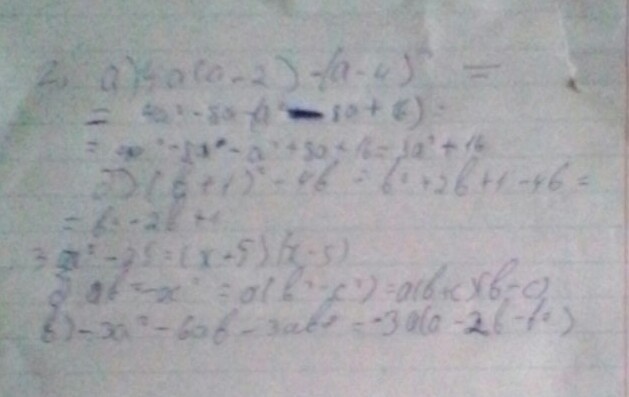 2. а) 4a(a-2)-(a-4)² =
= 4a²-8a-(a²-8a+16)=
= 4a²-8a-a²+8a+16=3a²+16
б) (b+1)²-4b = b²+2b+1-4b=
= b²-2b+1
3 x²-25=(x+5)(x-5)
= a(b²-c²)=a(b+c)(b-c)
в) -3a²-6ab-3ab² = -3a(a-2b-b²)